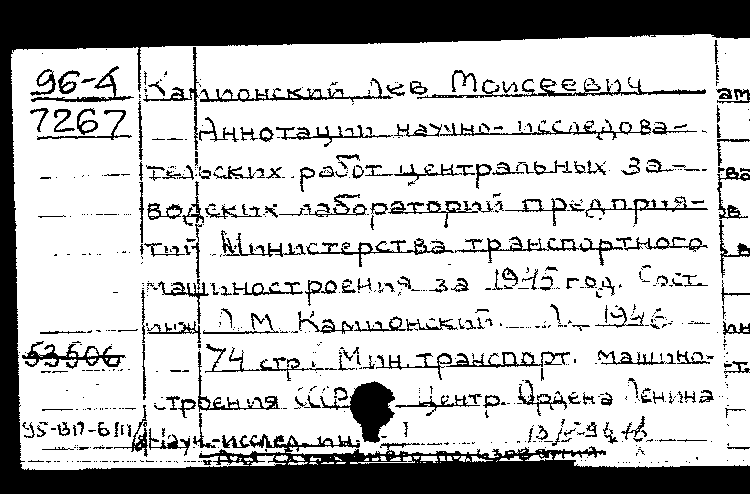 96-4 Кампонский, Лев Моисеевич
7267 Аннотации научно-исследова-
тельских работ центральных за-
водских лабораторий предприя-
тий Министерства транспортного
машиностроения за 1945 год. Сост.
инж. Л. М. Кампонский. Л., 1946
53506 74 стр. Мин. транспорт. машино-
строения СССР Центр. Ордена Ленина
науч.-исслед. ин.
Для служебного пользования